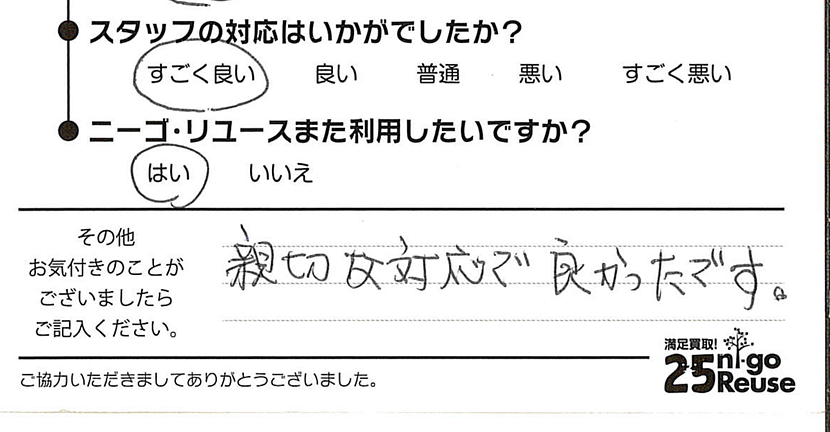 スタッフの対応はいかがでしたか?
すごく良い 良い 普通 悪い すごく悪い
ニーゴ・リユースまた利用したいですか?
はい いいえ
その他
お気付きのことが
ございましたら
ご記入ください。
親切な対応で良かったです。
満足買取!
25 ni-go
Reuse
ご協力いただきましてありがとうございました。